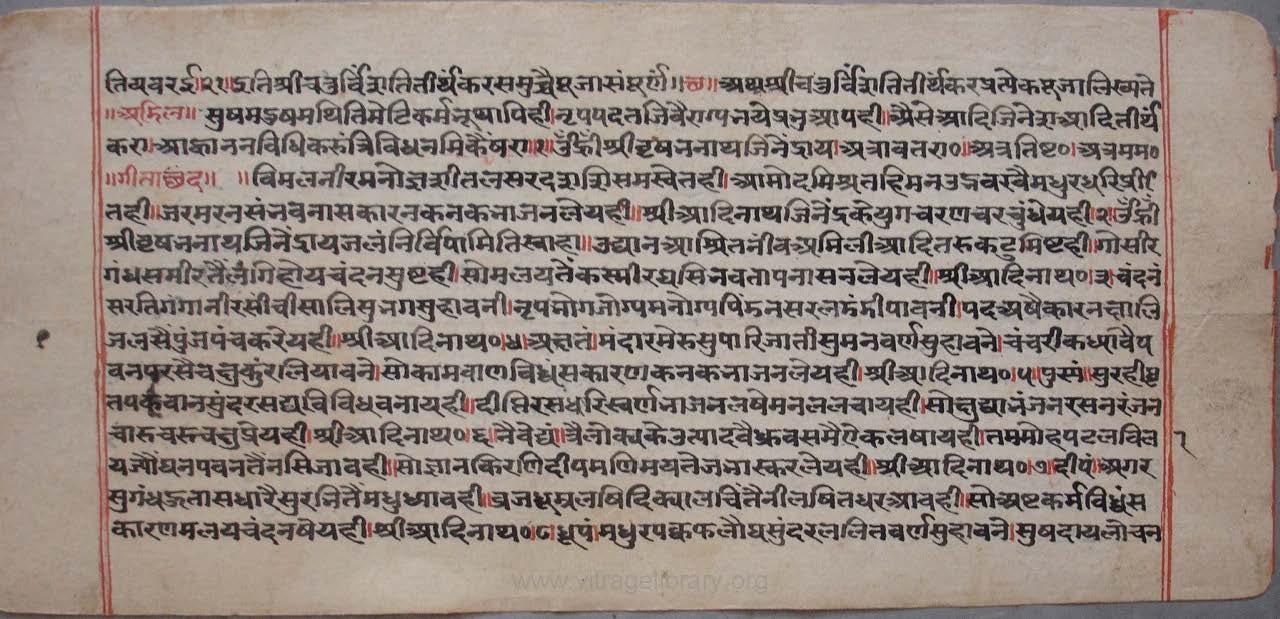 तियवरई।२१।इतिश्रीचतुर्विंशतितीर्थंकरसमुच्चैपूजासंपूर्णं॥छ॥अथश्रीचतुर्विंशतितीर्थंकरप्रत्येकपूजालिख्यते
॥अडिल॥ सुषमदुषमथितिमेटिकर्मभूथापिही।नृपपदतजिवैराग्यनये आपही।असेआदिजिनेशआदितीर्थं
करा।आह्वाननविधिकरूंत्रिविधनमिकैंषरा।१।उँह्रीँश्रीवृषभनाथजिनेंद्राय।अत्रावतरा०।अत्रतिष्ट०।अत्रमम०
॥गीताछंद॥ ॥विमलनीरमनोज्ञशीतलसरदशशिसमस्वेतही।आमोदमिश्रतहिमनउद्भव मधुर
तही।जरमरनसंभवनासकारनकनकभाजनलेयही।श्रीआदिनाथजिनेंद्रकेयुगचरणचरचुंधेयही।२।उँह्रीँ
श्रीवृषभनाथजिनेंद्रायजलंनिर्विपामितिस्वाहा॥उद्यानआश्रितनींवअमिलीआदितरुकटुमिष्टही।गोसीर
गंधसमीरतैंलगिहोयचंदनसुष्टही।सोमलयतैंकस्मीरघसिभवतापनासनलेयही।श्रीआदिनाथ०।३।चंदनं
सरितिगंगानीरसींचीसालिसुभगसुहावनी।नृपभोगजोग्यमनोग्य सरल पावनी।पदअषैकारनक्षालि
जलसैंपुंजपंचकरेयही।श्रीआदिनाथ०।४।अक्षतं।मंदारमेरुसुपारिजातीसुमनवर्णसुहावने।चंचरीकभ्रमैप
वनपरसैचक्षुकुंरलियावने।सोकामवाणविध्वंसकारणकनकभाजनलेयही।श्रीआदिनाथ०।५।पुस्पं।सुरहीघृ
तपकवानसुंदरसद्यविविधवनायही।दीप्तिरसधरिस्वर्णभाजनलषेमनललचायही।सोक्षुद्याभंजनरसनरंजन
चारुचरुचक्षुप्रेयही।श्रीआदिनाथ०।६।नैवेद्यं।त्रैलोक्यकेउत्पादवैध्रुवसमैऐकलषायही।तममोहपटलविल
यज्यौंघनपवनतैंनसिजावही।सोज्ञानकिरणिदीपमणिमयतेजभास्करलेयही।श्रीआदिनाथ०।७।दीपं।अगर
सुगंध सुरभितैंमधुध्यावही। लषिदिक्पालचिंतैनीलषितधरआवही।सोअष्टकर्मविध्वंस
कारणमलयचंदनषेयही।श्रीआदिनाथ०।८।धूपं।मधुरपक्कफलौघसुंदरललितवर्णसुहावने।सुषदायलोचन
www.vitragelibrary.org